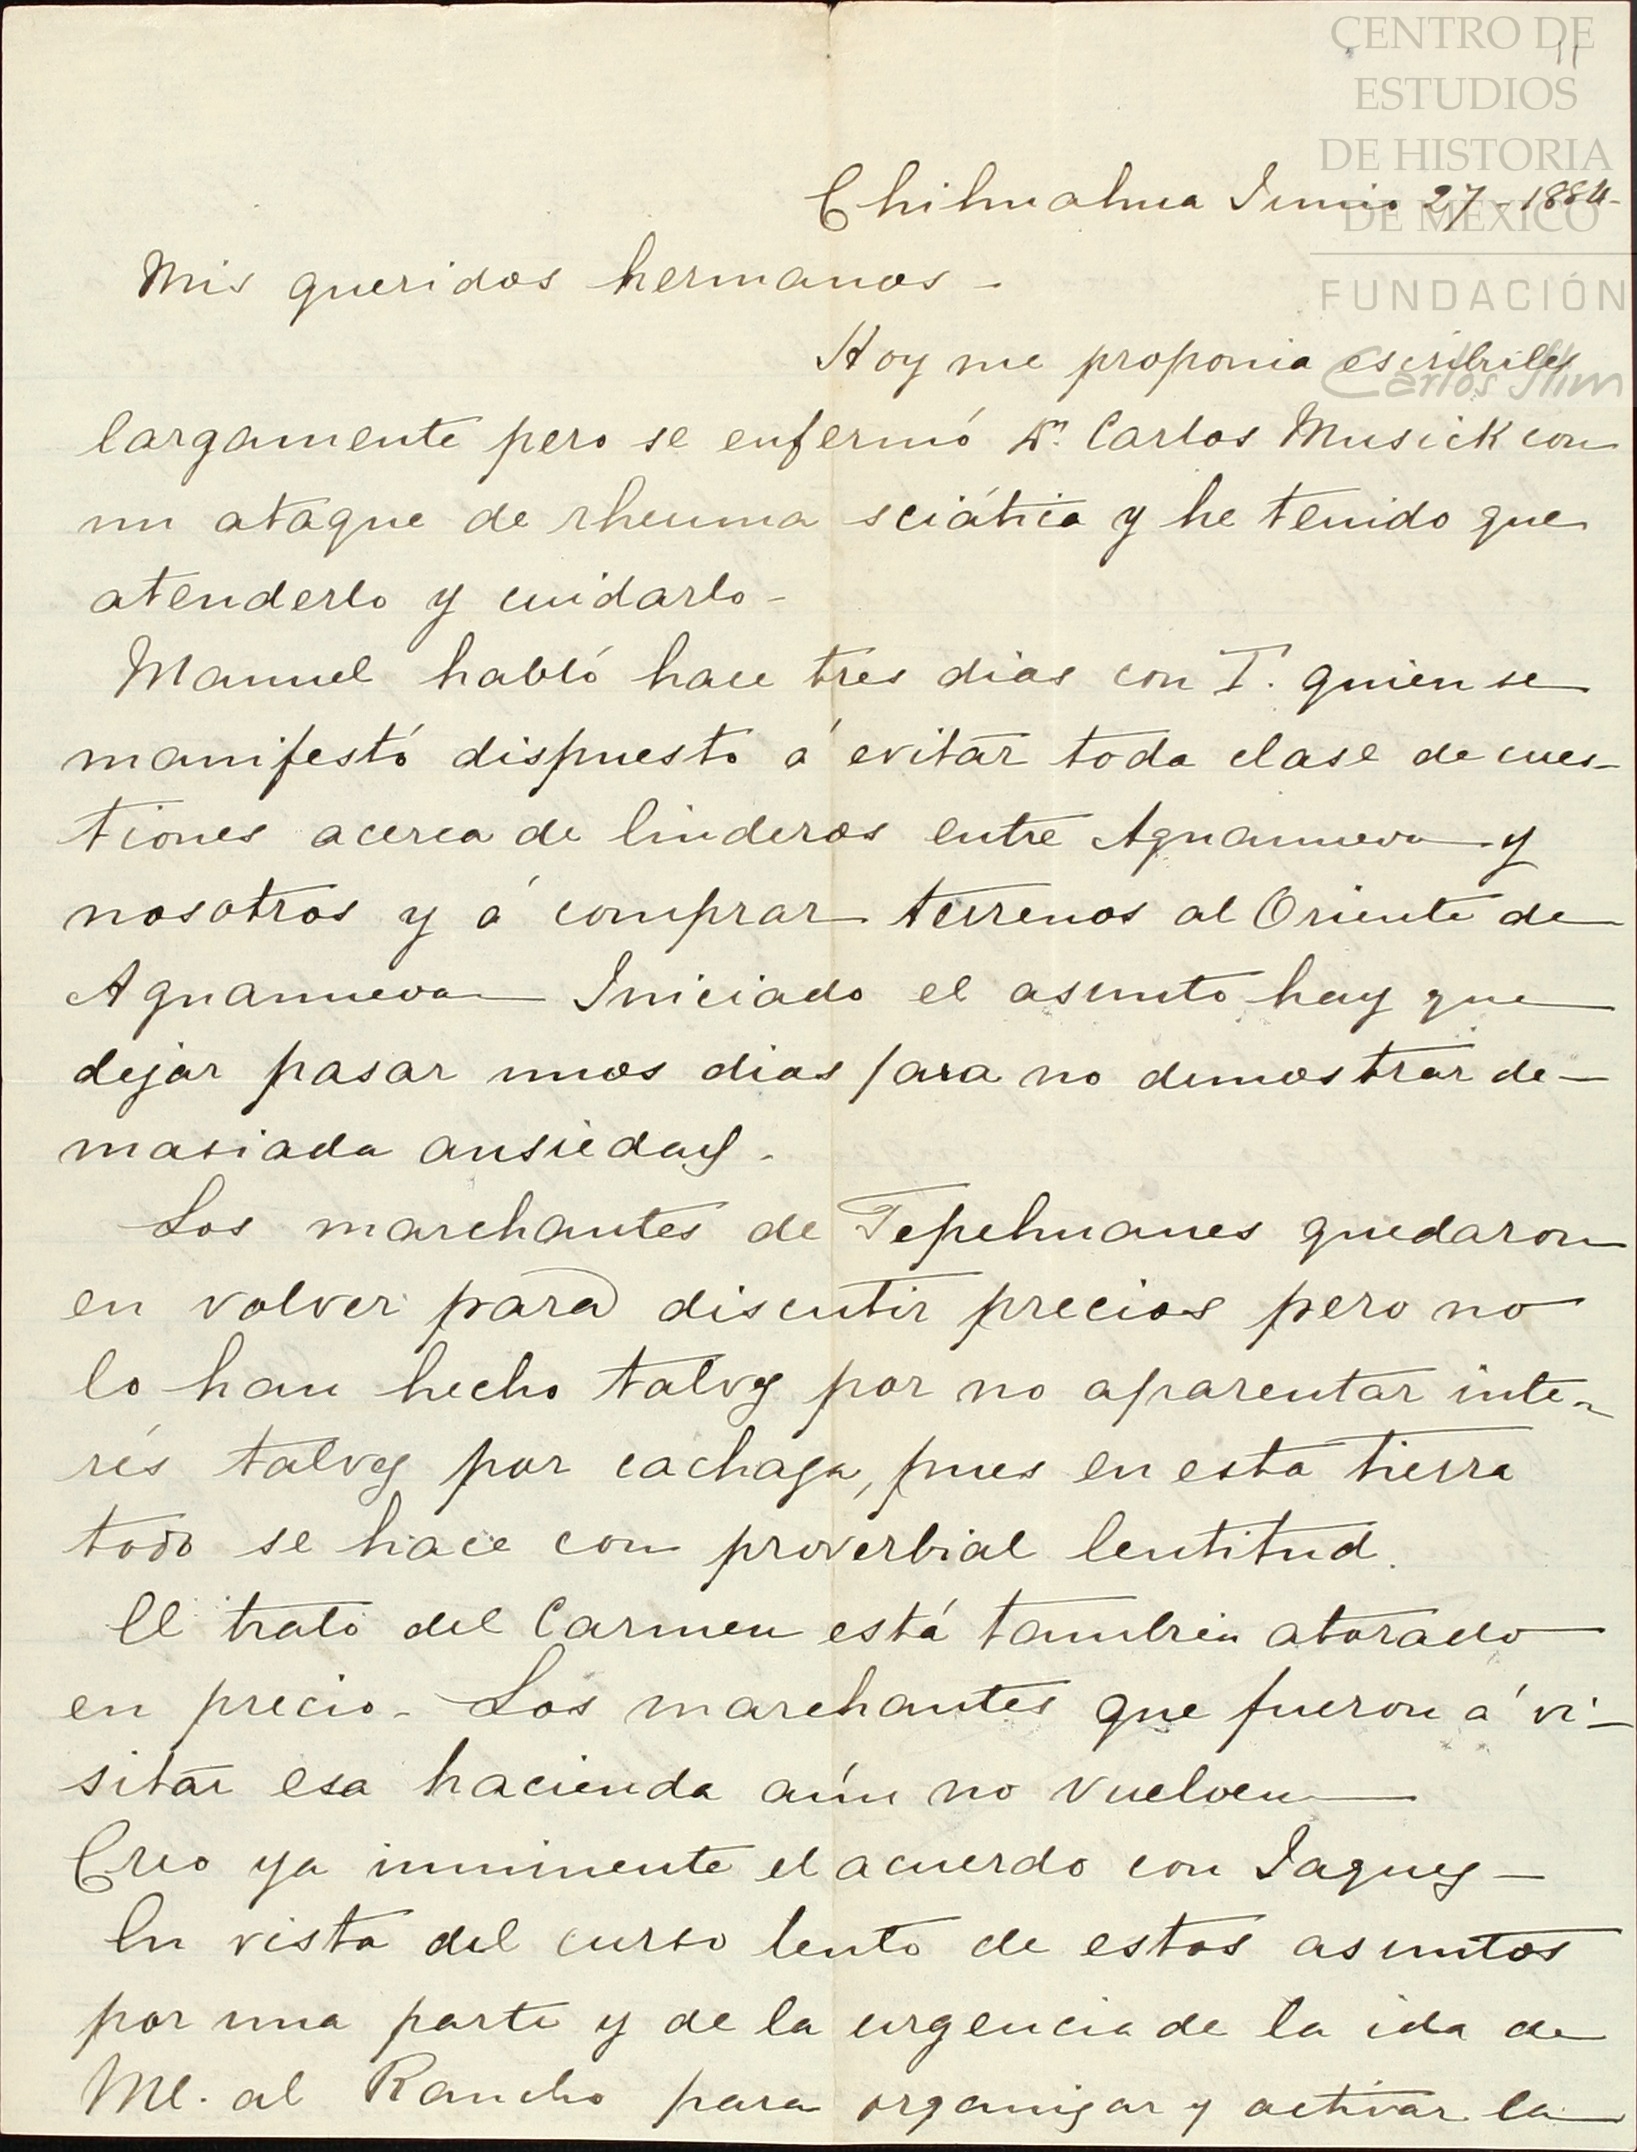 CENTRO DE
ESTUDIOS
DE HISTORIA
DE MÉXICO
FUNDACIÓN
Carlos Slim
11
Chihuahua Junio 27-1884-
Mis queridos hermanos -
Hoy me proponia escribiles
largamente pero se enfermó Dn. Carlos Musick con
un ataque de rheuma sciática y he tenido que
atenderlo y cuidarlo -
Manuel habló hace tres dias con T. quien se
manifestó dispuesto á evitar toda clase de cues-
tiones acerca de linderos entre Aguanueva y
nosotros y á comprar terrenos al Oriente de
Aguanueva Iniciado el asunto hay que
dejar pasar unos dias para no demostrar de-
masiada ansiedad.
Los marchantes de Tepehuanes quedaron
en volver para discutir precios pero no
lo han hecho talvez por no aparentar inte-
rés talvez por cachaza, pues en esta tierra
todo se hace con proverbial lentitud.
El trato del Carmen está tambien atorado
en precio - Los marchantes que fueron á vi-
sitar esa hacienda aún no vuelven
Creo ya imminente el acuerdo con Jaquez -
En vista del curso lento de estos asuntos
por una parte y de la urgencia de la ida de
Ml. al Rancho para organizar y activar la